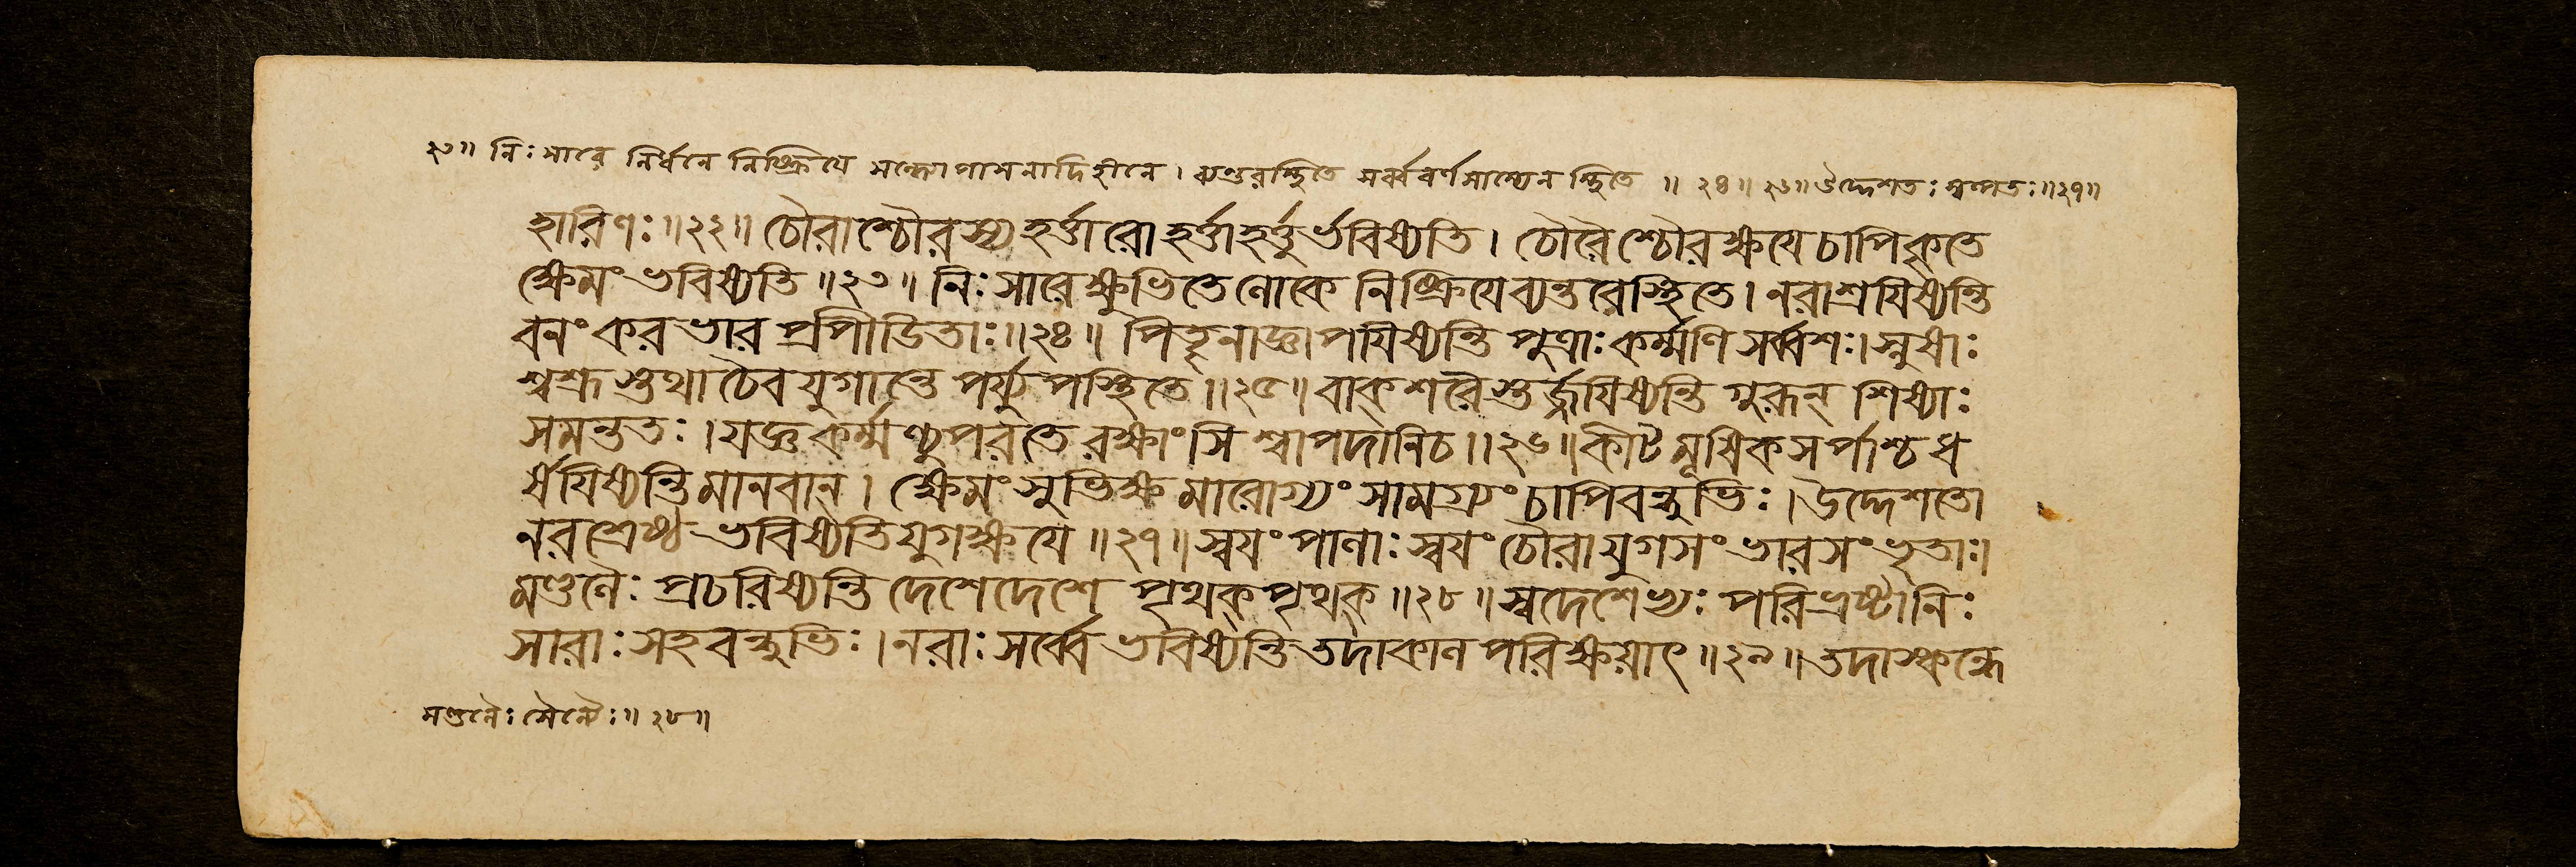 ২৩॥ নিঃসারে নির্ধনে নিষ্ক্রিযে সন্ধ্যোপাসনাদিহীনে। ব্যণ্তরস্থিতে সর্ব্ববর্ণসাম্যেন স্থিতে ॥ ২৪॥ ২৬॥ উদ্দেশতঃ স্বল্পতঃ॥২৭॥
হারিণঃ॥২২॥ চৌরাশ্চৌরস্য হর্ত্তারো হর্ত্তা হর্ত্তুর্ভবিষ্যতি। চৌরৈশ্চৌরক্ষযে চাপি কৃতে
ক্ষেমং ভবিষ্যতি॥২৩॥ নিঃসারে ক্ষুভিতে লোকে নিষ্ক্রিযে ব্যন্তরে স্থিতে। নরা শ্রযিষ্যন্তি
বনং করভারপ্রপীডিতাঃ॥২৪॥ পিতৄনাজ্ঞাপযিষ্যন্তি পুত্রাঃ কর্ম্মণি সর্ব্বশঃ। স্নুষাঃ
শ্বশ্রূস্তথা চৈব যুগান্তে পর্য্যুপস্থিতে॥২৫॥ বাক্শরৈস্তর্জ্জযিষ্যন্তি গুরূন্ শিষ্যাঃ
সমন্ততঃ। যজ্ঞকর্ম্মণ্যুপরতে রক্ষাংসি শ্বাপদানি চ॥২৬॥ কীটমূষিকসর্পাশ্চ ধ
র্ষযিষ্যন্তি মানবান্। ক্ষেমং সুভিক্ষমারোগ্যং সামগ্র্যং চাপি বন্ধুভিঃ। উদ্দেশতো
নরশ্রেষ্ঠ ভবিষ্যতি যুগক্ষযে॥২৭॥ স্বযং পালাঃ স্বযং চৌরা যুগসংভারসংভৃতাঃ।
মণ্ডলৈঃ প্রচরিষ্যন্তি দেশে দেশে পৃথক্ পৃথক্॥২৮॥ স্বদেশেভ্যঃ পরিভ্রষ্টা নিঃ
সারাঃ সহ বন্ধুভিঃ। নরাঃ সর্ব্বে ভবিষ্যন্তি তদা কালপরিক্ষয়াৎ॥২৯॥ তদা স্কন্ধে
মণ্ডলৈঃ সৈন্যৈঃ॥২৮॥